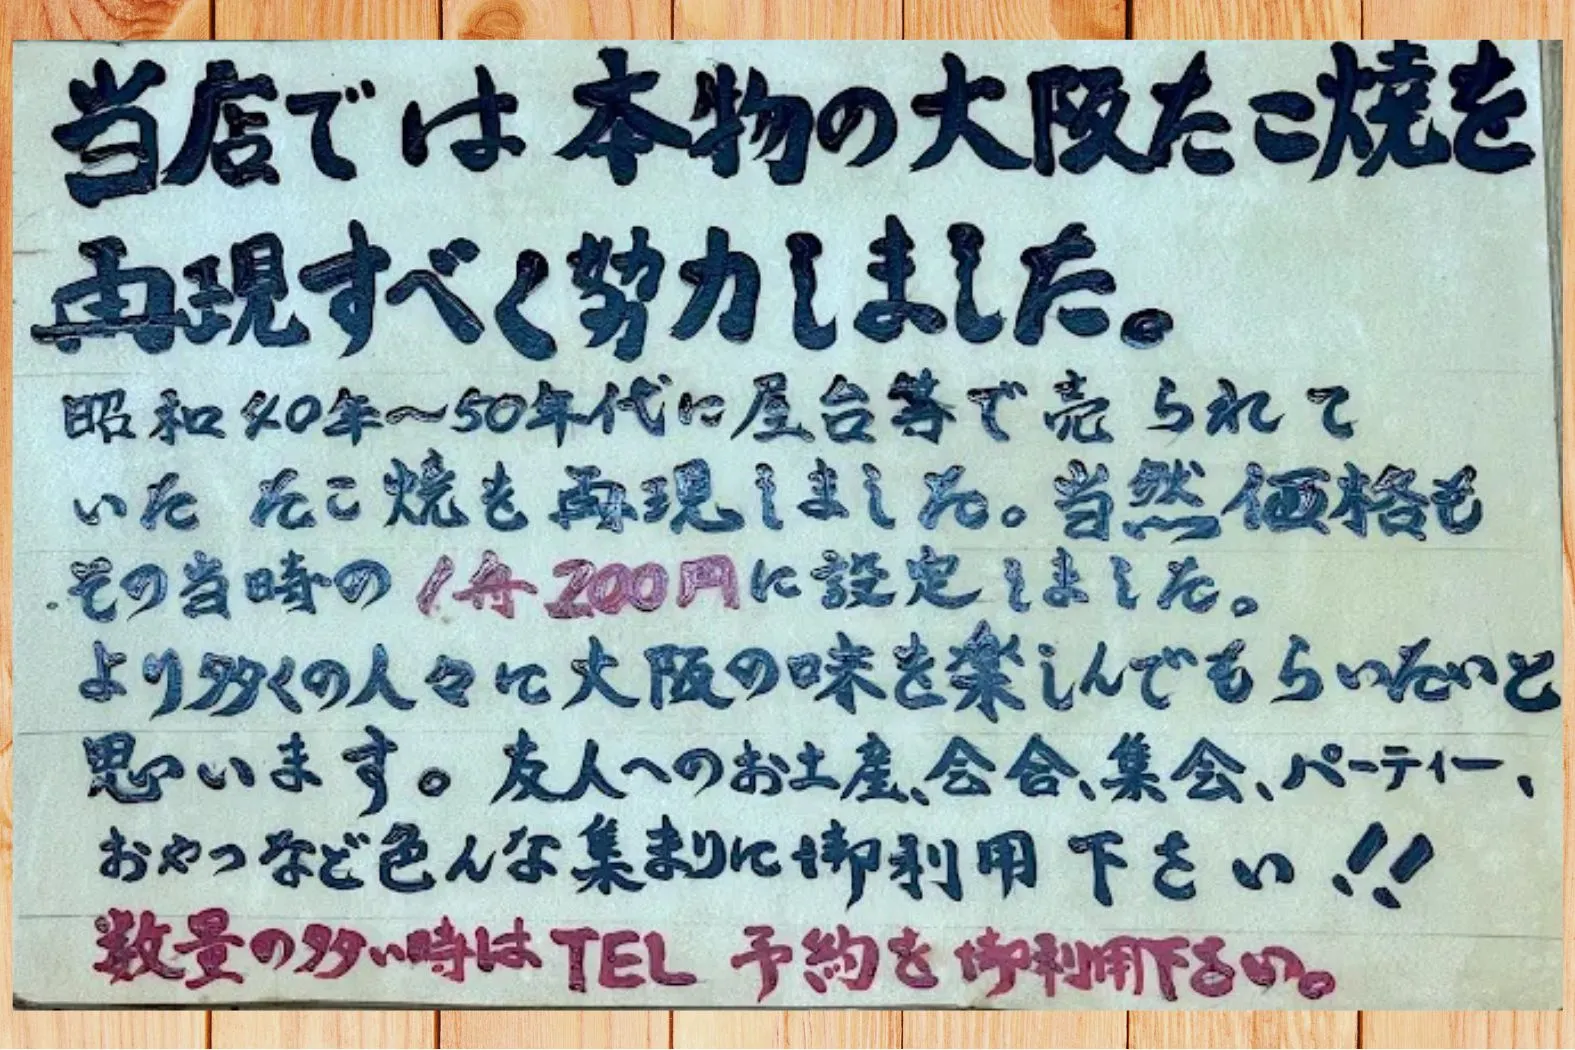 当店では本物の大阪たこ焼を
再現すべく努力しました。
昭和40年～50年代に屋台等で売られて
いたたこ焼を再現しました。当然価格も
その当時の1舟200円に設定しました。
より多くの人々に大阪の味を楽しんでもらいたいと
思います。友人へのお土産、会合、集会、パーティー、
おやつなど色んな集まりに御利用下さい!!
数量の多い時はTEL予約を御利用下さい。